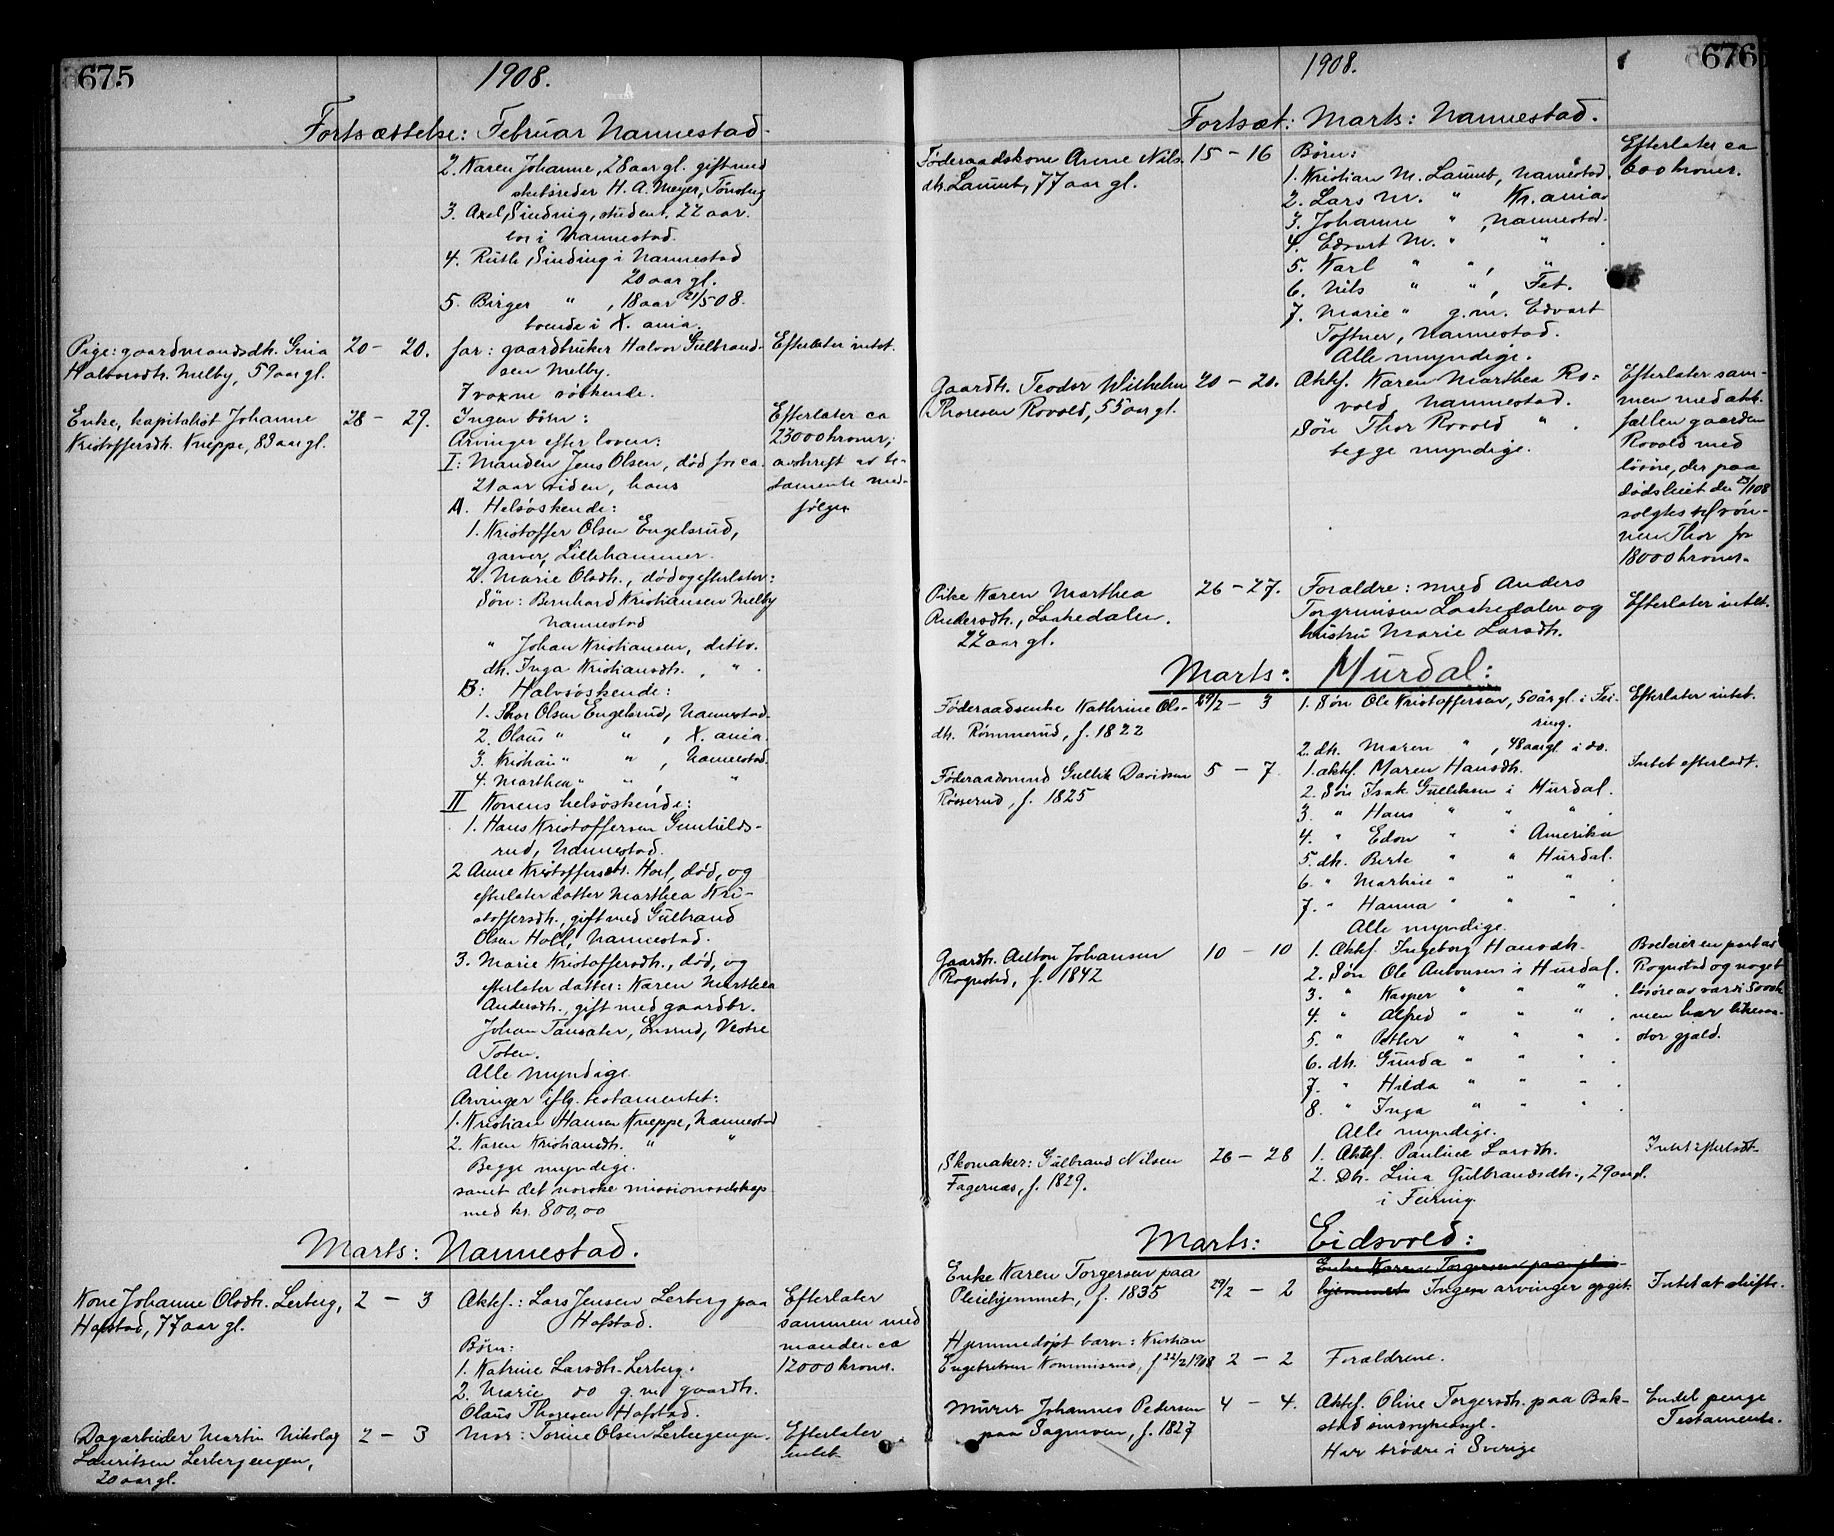 675
1908.
Fortsættelse: Februar Nannestad.
2. Karen Johanne, 28 aar gl. gift med
skibsreder H. A. Meyer, Tønsberg
3. Axel Sinding, student, 22 aar.
bor i Nannestad.
4. Ruth Sinding i Nannestad
20 aar gl.
5. Birger " , 18 aar 21/5 08.
boende i X. ania.
Pige: gaardmandsdh. Gina
Halvorsdh. Melby, 59 aar gl.
20 - 20.
far: gaardbruker Halvor Gulbrand-
sen Melby.
7 voxne søskende.
Efterlater intet.
Enke, kapitalist Johanne
Kristoffersdh. Kneppe, 83 aar gl.
28 - 29.
Ingen børn:
Arvinger efter loven:
I: Manden Jens Olsen, død for ca.
21 aar siden, hans
A. Helsøskende:
1. Kristoffer Olsen Engelsrud,
garver, Lillehammer.
2. Marie Olsdh., død og efterlater:
Søn: Bernhard Kristiansen Melby
Nannestad
" Johan Kristiansen, ditto.
dh. Inga Kristiansdh. , " .
B: Halvsøskende:
1. Thor Olsen Engelsrud, Nannestad.
2. Olaus " " , X. ania.
3. Kristian " " , Nannestad.
4. Marthea " " , "
II Konens helsøskende:
1. Hans Kristoffersen Gunhilds-
rud, Nannestad.
2 Anne Kristoffersdh. Holl, død, og
efterlater datter Marthea Kri-
stoffersdh., gift med Gulbrand
Olsen Holl, Nannestad.
3. Marie Kristoffersdh., død, og
efterlater datter: Karen Marthea
Andersdh., gift med gaardbr.
Johan Tausater, Ensrud, Vestre
Toten.
Alle myndige.
Arvinger iflg. testamentet:
1. Kristian Hansen Kneppe, Nannestad
2. Karen Kristiansdh. " "
Begge myndige.
samt det norske missionsselskap
med kr. 800,00
Efterlater ca
23000 kroner;
avskrift av te-
stamente med-
følger
Marts: Nannestad.
Kone Johanne Olsdh. Lerberg,
Hofstad, 77 aar gl.
2 - 3
Aktef.: Lars Jensen Lerberg paa
Hofstad.
Børn:
1. Katrine Larsdh. Lerberg.
2. Marie do g. m. gaardb.
Olaus Thoresen Hofstad.
Efterlater
sammen med
manden ca
12000 kroner.
Dagarbeider Martin Nikolay
Lauritsen Lerbergengen,
20 aar gl.
2 - 3
Mor: Torine Olsen Lerbergengen.
Efterlater
intet.
676
1908.
Fortsæt: Marts: Nannestad.
Føderaadskone Anne Nils-
dh. Laumb, 77 aar gl.
15 - 16
Børn:
1. Kristian M. Laumb, Nannestad.
2. Lars M. " Kr.ania.
3. Johanne " , Nannestad.
4. Edvart M. " " .
5. Karl " " , " .
6. Nils " " , Fet.
7. Marie " g. m. Edvart
Toftner, Nannestad.
Alle myndige.
Efterlater ca
600 kroner.
Gaardb. Teodor Wilhelm
Thoresen Rovold, 55 aar gl.
20 - 20.
Aktef. Karen Marthea Ro-
vold Nannestad.
Søn Thor Rovold " .
begge myndige.
Efterlater sam-
men med akte-
fællen gaarden
Rovold med
løsøre, der paa
dødsleiet den 23/1 08
solgtes til søn-
nen Thor for
18000 kroner.
Pike Karen Marthea
Andersdh., Laakedalen.
22 aar gl.
26 - 27.
Forældre: med Anders
Torgrimsen Laakedalen og
hustru Marie Larsdh.
Efterlater intet.
Marts: Hurdal:
Føderaadsenke Kathrine Ols-
dh. Rømmerud, f. 1822
29/2 - 3
1. Søn Ole Kristoffersen, 50 år gl. i Fei-
ring.
2. dh. Maren " , 48 aar gl. i do.
Efterlater intet.
Føderaadsmand Gullik Davidsen
Røsserud, f. 1825
5 - 7.
1. aktef. Maren Hansdh.
2. Søn Isak Gulliksen i Hurdal.
3. " Hans " " " .
4. " Edon " " Amerika
5. dh. Berte " " Hurdal.
6. " Martine " " " .
7. " Hanna " " " .
Alle myndige.
Intet efterladt.
Gaardb. Anton Johansen
Rognstad, f. 1842
10 - 10
1. Aktef. Ingeborg Hansdh.
2. Søn Ole Antonsen i Hurdal.
3. " Kasper " " " .
4. " Alfred " " " .
5. " Petter " " " .
6. dh. Gunda " " " .
7. " Hilda " " " .
8. " Inga " " " .
Alle myndige.
Boet eier en part av
Rognstad og noget
løsøre av værdi 5000 k
men har likesaa
stor gjæld.
Skomaker: Gulbrand Nilsen
Fagernæs, f. 1829.
26 - 28
1. Aktef. Pauline Larsdh.
2. Dh. Lina Gulbrandsdh., 29 aar gl.
i Feiring.
Intet efterladt.
Marts: Eidsvold:
Enke Karen Torgersen paa
Pleiehjemmet, f. 1835
29/2 - 2
Enke Karen Torgersen paa plei-
hjemmet Ingen arvinger opgit.
Intet at skifte.
Hjemmedøpt barn: Kristian
Engebretsen Kommisrud, f. 22/2 1908
2 - 2
Forældrene.
Murer Johannes Pedersen
paa Dagmoen, f. 1827
4 - 4.
Aktef. Oline Torgersdh. paa Bak-
stad sindsykeasyl.
Har brødre i Sverige
Endel penge
Testamente.